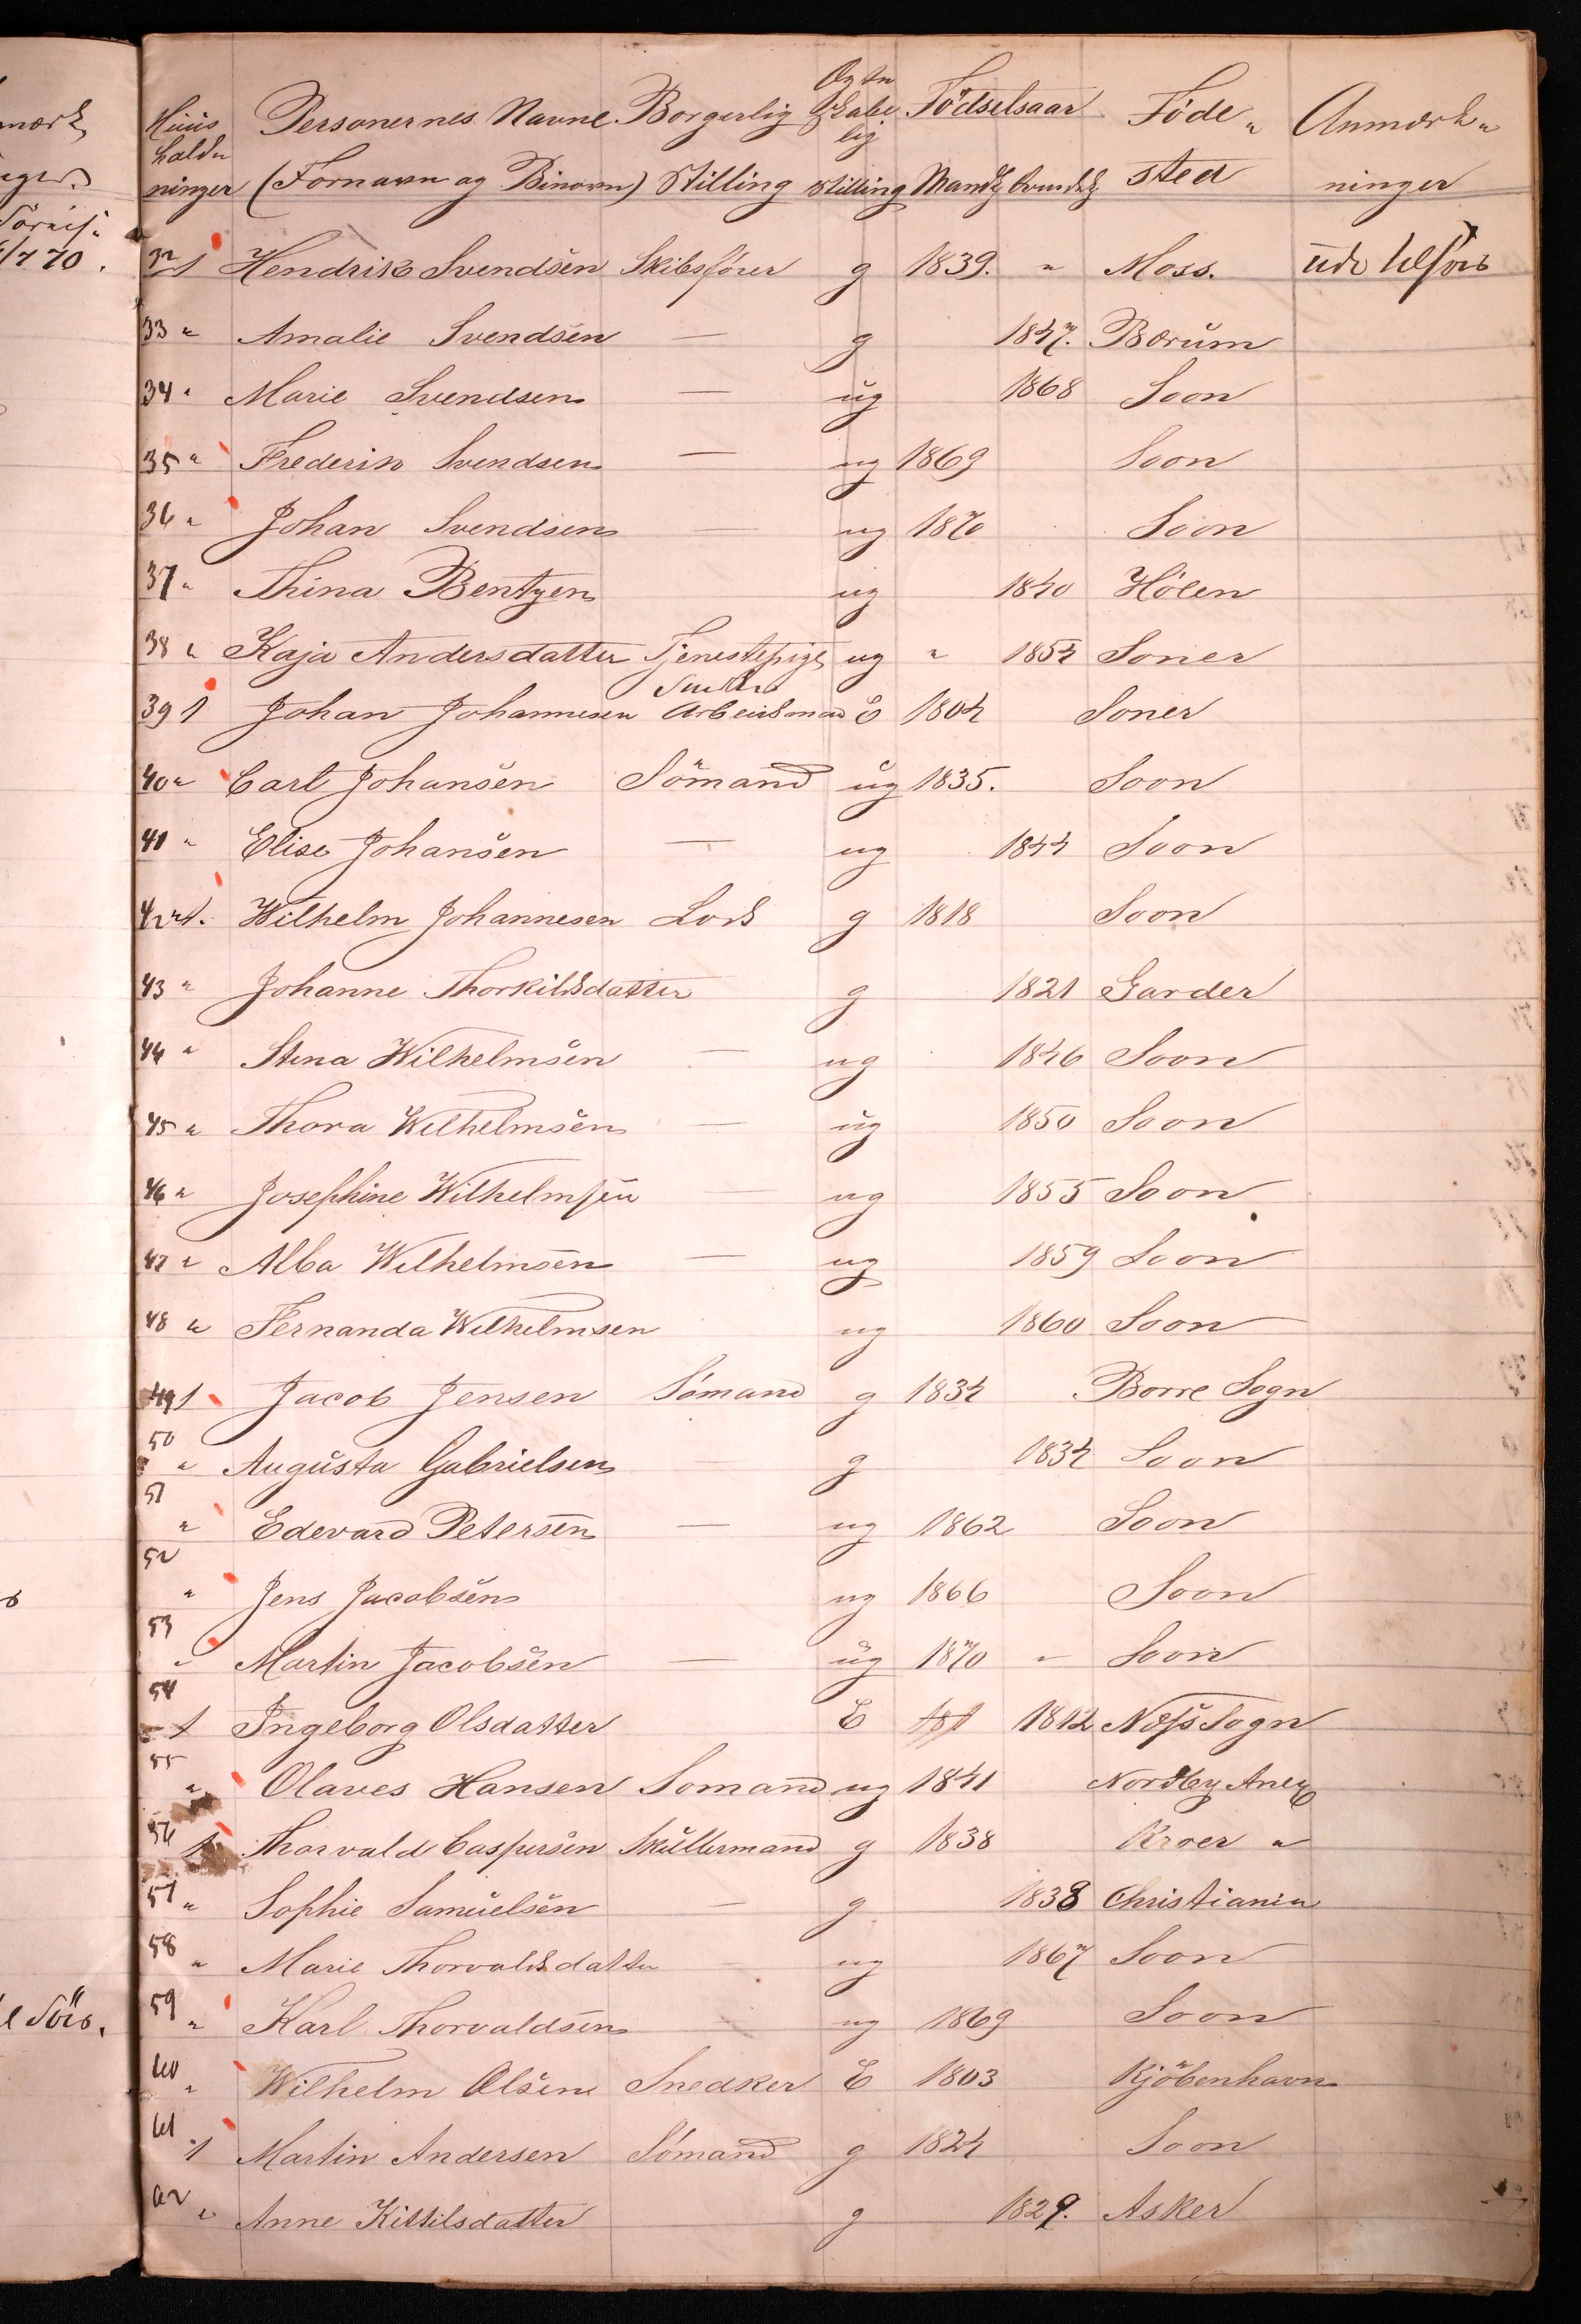 Huus Personernes Navne Borgerlig Egte Födselsaar Föde " Anmærk "
hold " skabe
ninger (Fornavn og Binavn) Stilling lig stilling Mandk Qvindk sted ninger
32 1 Hendrik Svendsen Skibsfører g 1839. " Moss. ude tilsös
33 " Amalie Svendsen — g 1847. Bærum
34 " Marie Svendsen — ug 1868 Soon
35 " Frederik Svendsen — ug 1869 Soon
36 " Johan Svendsen — ug 1870 Soon
37 " Thina Bentzen ug 1840 Hölen
38 " Kaja Andersdatter Tjenestepige ug " 1854 Soner
39 1 Johan Johannesen Arbeidsmand E 1804 Soner
40 " Carl Johansen Sömand ug 1835. Soon
41 " Elise Johansen — ug 1844 Soon
42 1. Wilhelm Johannesen Lods g 1818 Soon
43 " Johanne Thorkildsdatter g 1821 Garder
44 " Stina Wilhelmsen — ug 1846 Soon
45 " Thora Wilhelmsen — ug 1850 Soon
46 " Josephine Wilhelmsen — ug 1855 Soon
47 " Alba Wilhelmsen — ug 1859 Soon
48 " Fernanda Wilhelmsen ug 1860 Soon
49 1 Jacob Jensen Sömand g 1834 Borre Sogn
50 " Augusta Gabrielsen — g 1834 Soon
51 " Edevard Petersen — ug 1862 Soon
52 " Jens Jacobsen ug 1866 Soon
53 " Martin Jacobsen — ug 1870 " Soon
54 1 Ingeborg Olsdatter E 1812 Næss Sogn
55 " Olaves Hansen Somand ug 1841 Nordby Anex
56 1 Thorvald Caspersen Skillermand g 1838 Kroer "
57 " Sophie Samuelsen — g 1838 Christiania
58 " Marie Thorvaldsdatter — ug 1867 Soon
59 " Karl Thorvaldsen — ug 1869 Soon
60 " Wilhelm Olsen Snedker E 1803 Kjöbenhavn
61 1 Martin Andersen Sömand g 1824 Soon
62 " Anne Kittilsdatter g 1829. Asker